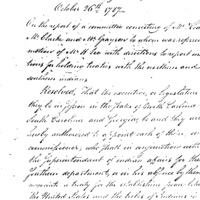 October 26th 1787.
On the report of a committee consisting of Mr
Mr Clark and Mr Grayson to whom was refer
motion of Mr H Lee with directions to report in
for holding treaties with the northern and
southern indians
Resolved, That the executive, or legislature
they be in session in the State of North Carolina
South Carolina and Georgia, be and they are
hereby authorised to appoint each of them,
commissioner, who shall in conjunction with
the Superintendant of indian affairs for the
southern department, or in his absence by them
a treaty for the establishing
the United States and the tribes of indians in